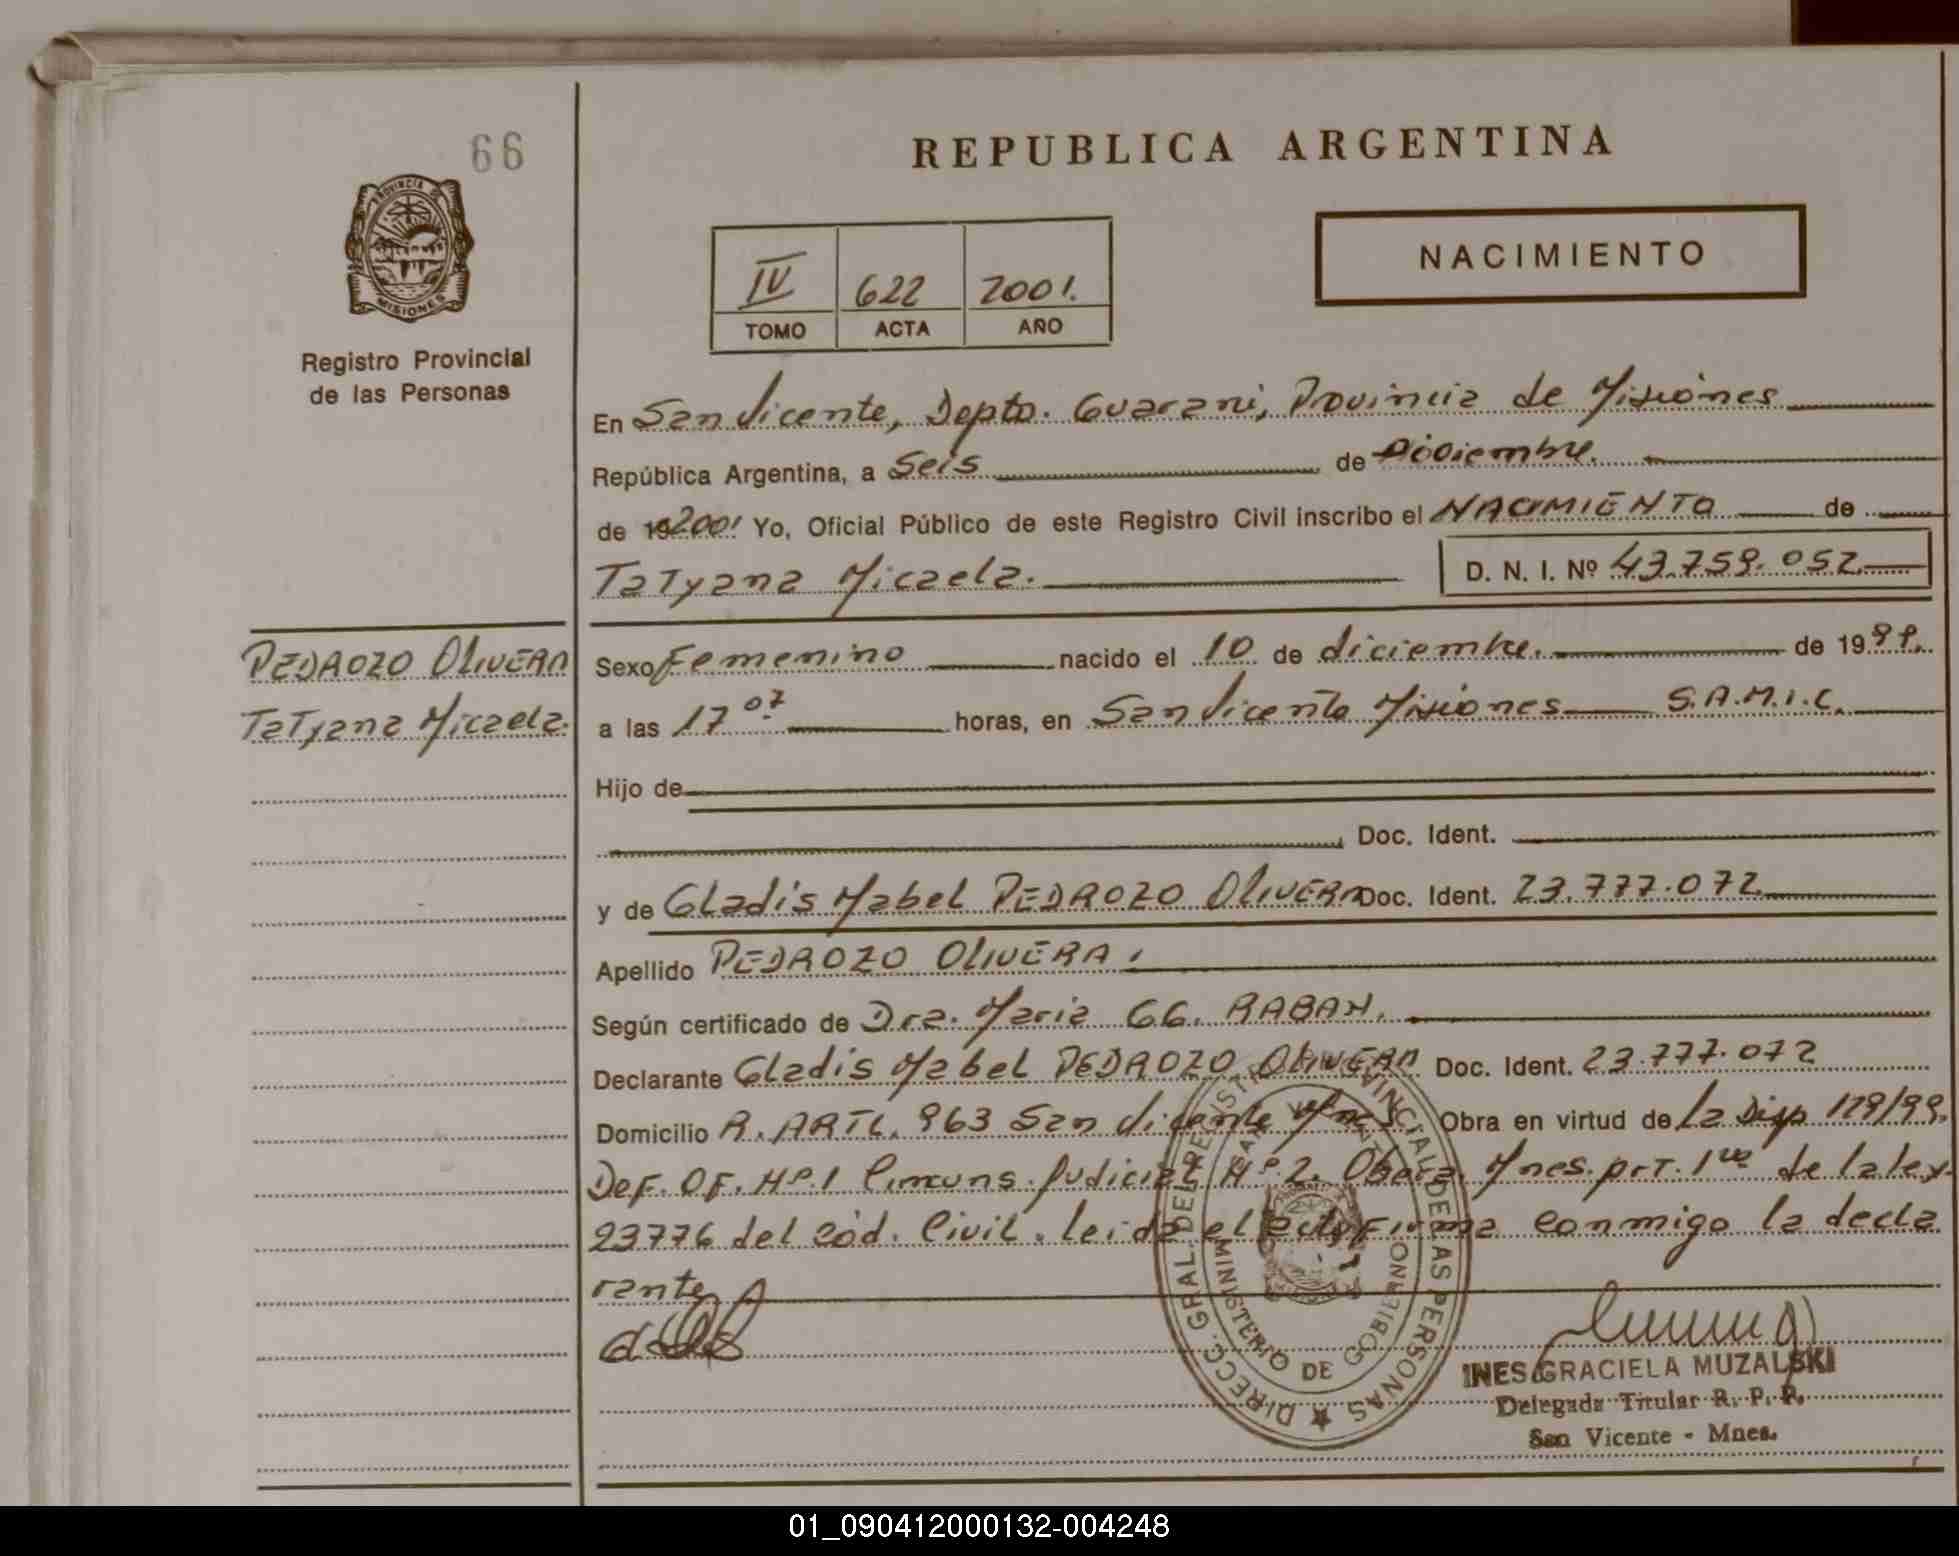 66
REPUBLICA ARGENTINA
PROVINCIA DE
MISIONES
Registro Provincial
de las Personas
NACIMIENTO
IV 622 2001.
TOMO ACTA AÑO
En San Vicente, Depto. Guarani, Provincia de Misiones
República Argentina, a Seis de Diciembre.
de 19 2001 Yo, Oficial Público de este Registro Civil inscribo el NACIMIENTO de
Tatyana Micaela. D. N. I. Nº 43.759.052
PEDROZO OLIVERA
Tatyana Micaela.
Sexo Femenino nacido el 10 de diciembre. de 1999.
a las 17 07 horas, en San Vicente Misiones S.A.M.I.C.
Hijo de
Doc. Ident.
y de Gladis Mabel PEDROZO OLIVERA Doc. Ident. 23.777.072
Apellido PEDROZO OLIVERA.
Según certificado de Dra. Maria GG. RABAN.
Declarante Gladis Mabel PEDROZO OLIVERA Doc. Ident. 23.777.072
Domicilio R. ARTL. 963 San Vicente Mnes. Obra en virtud de la Disp 129/99.
Def. OF. Nº.1 Circuns. Judicial Nº.2. Obera. Mnes. prt. 1ro de la ley
23776 del cód. Civil. leida el acta firma conmigo la decla
rante
DIRECC. GRAL. DEL REGISTRO PROVINCIAL DE LAS PERSONAS
SAN VICENTE
MINISTERIO DE GOBIERNO
INES GRACIELA MUZALSKI
Delegada Titular R. P. P.
San Vicente - Mnes.
01_090412000132-004248